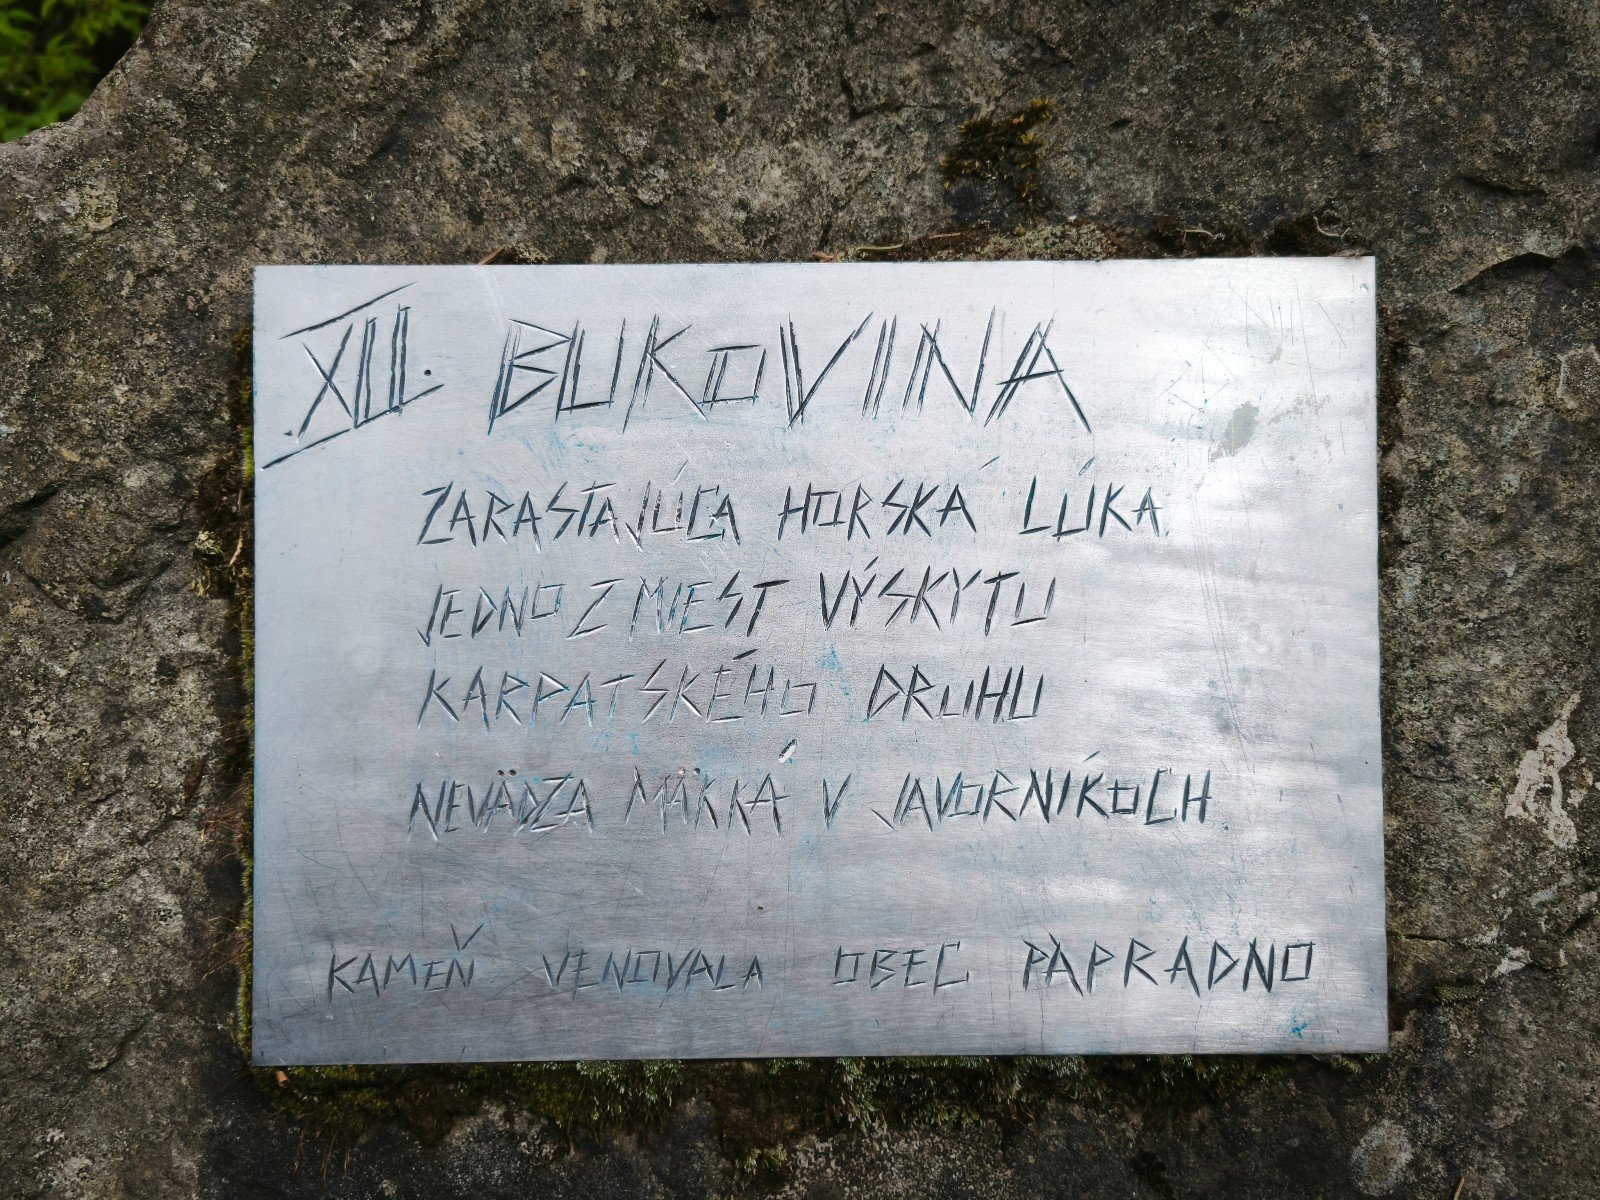 XII. BUKOVINA
ZARASTAJÚCA HORSKÁ LÚKA.
JEDNO Z MIEST VÝSKYTU
KARPATSKÉHO DRUHU
NEVÄDZA MÄKKÁ V JAVORNÍKOCH
KAMEŇ VENOVALA OBEC PAPRADNO